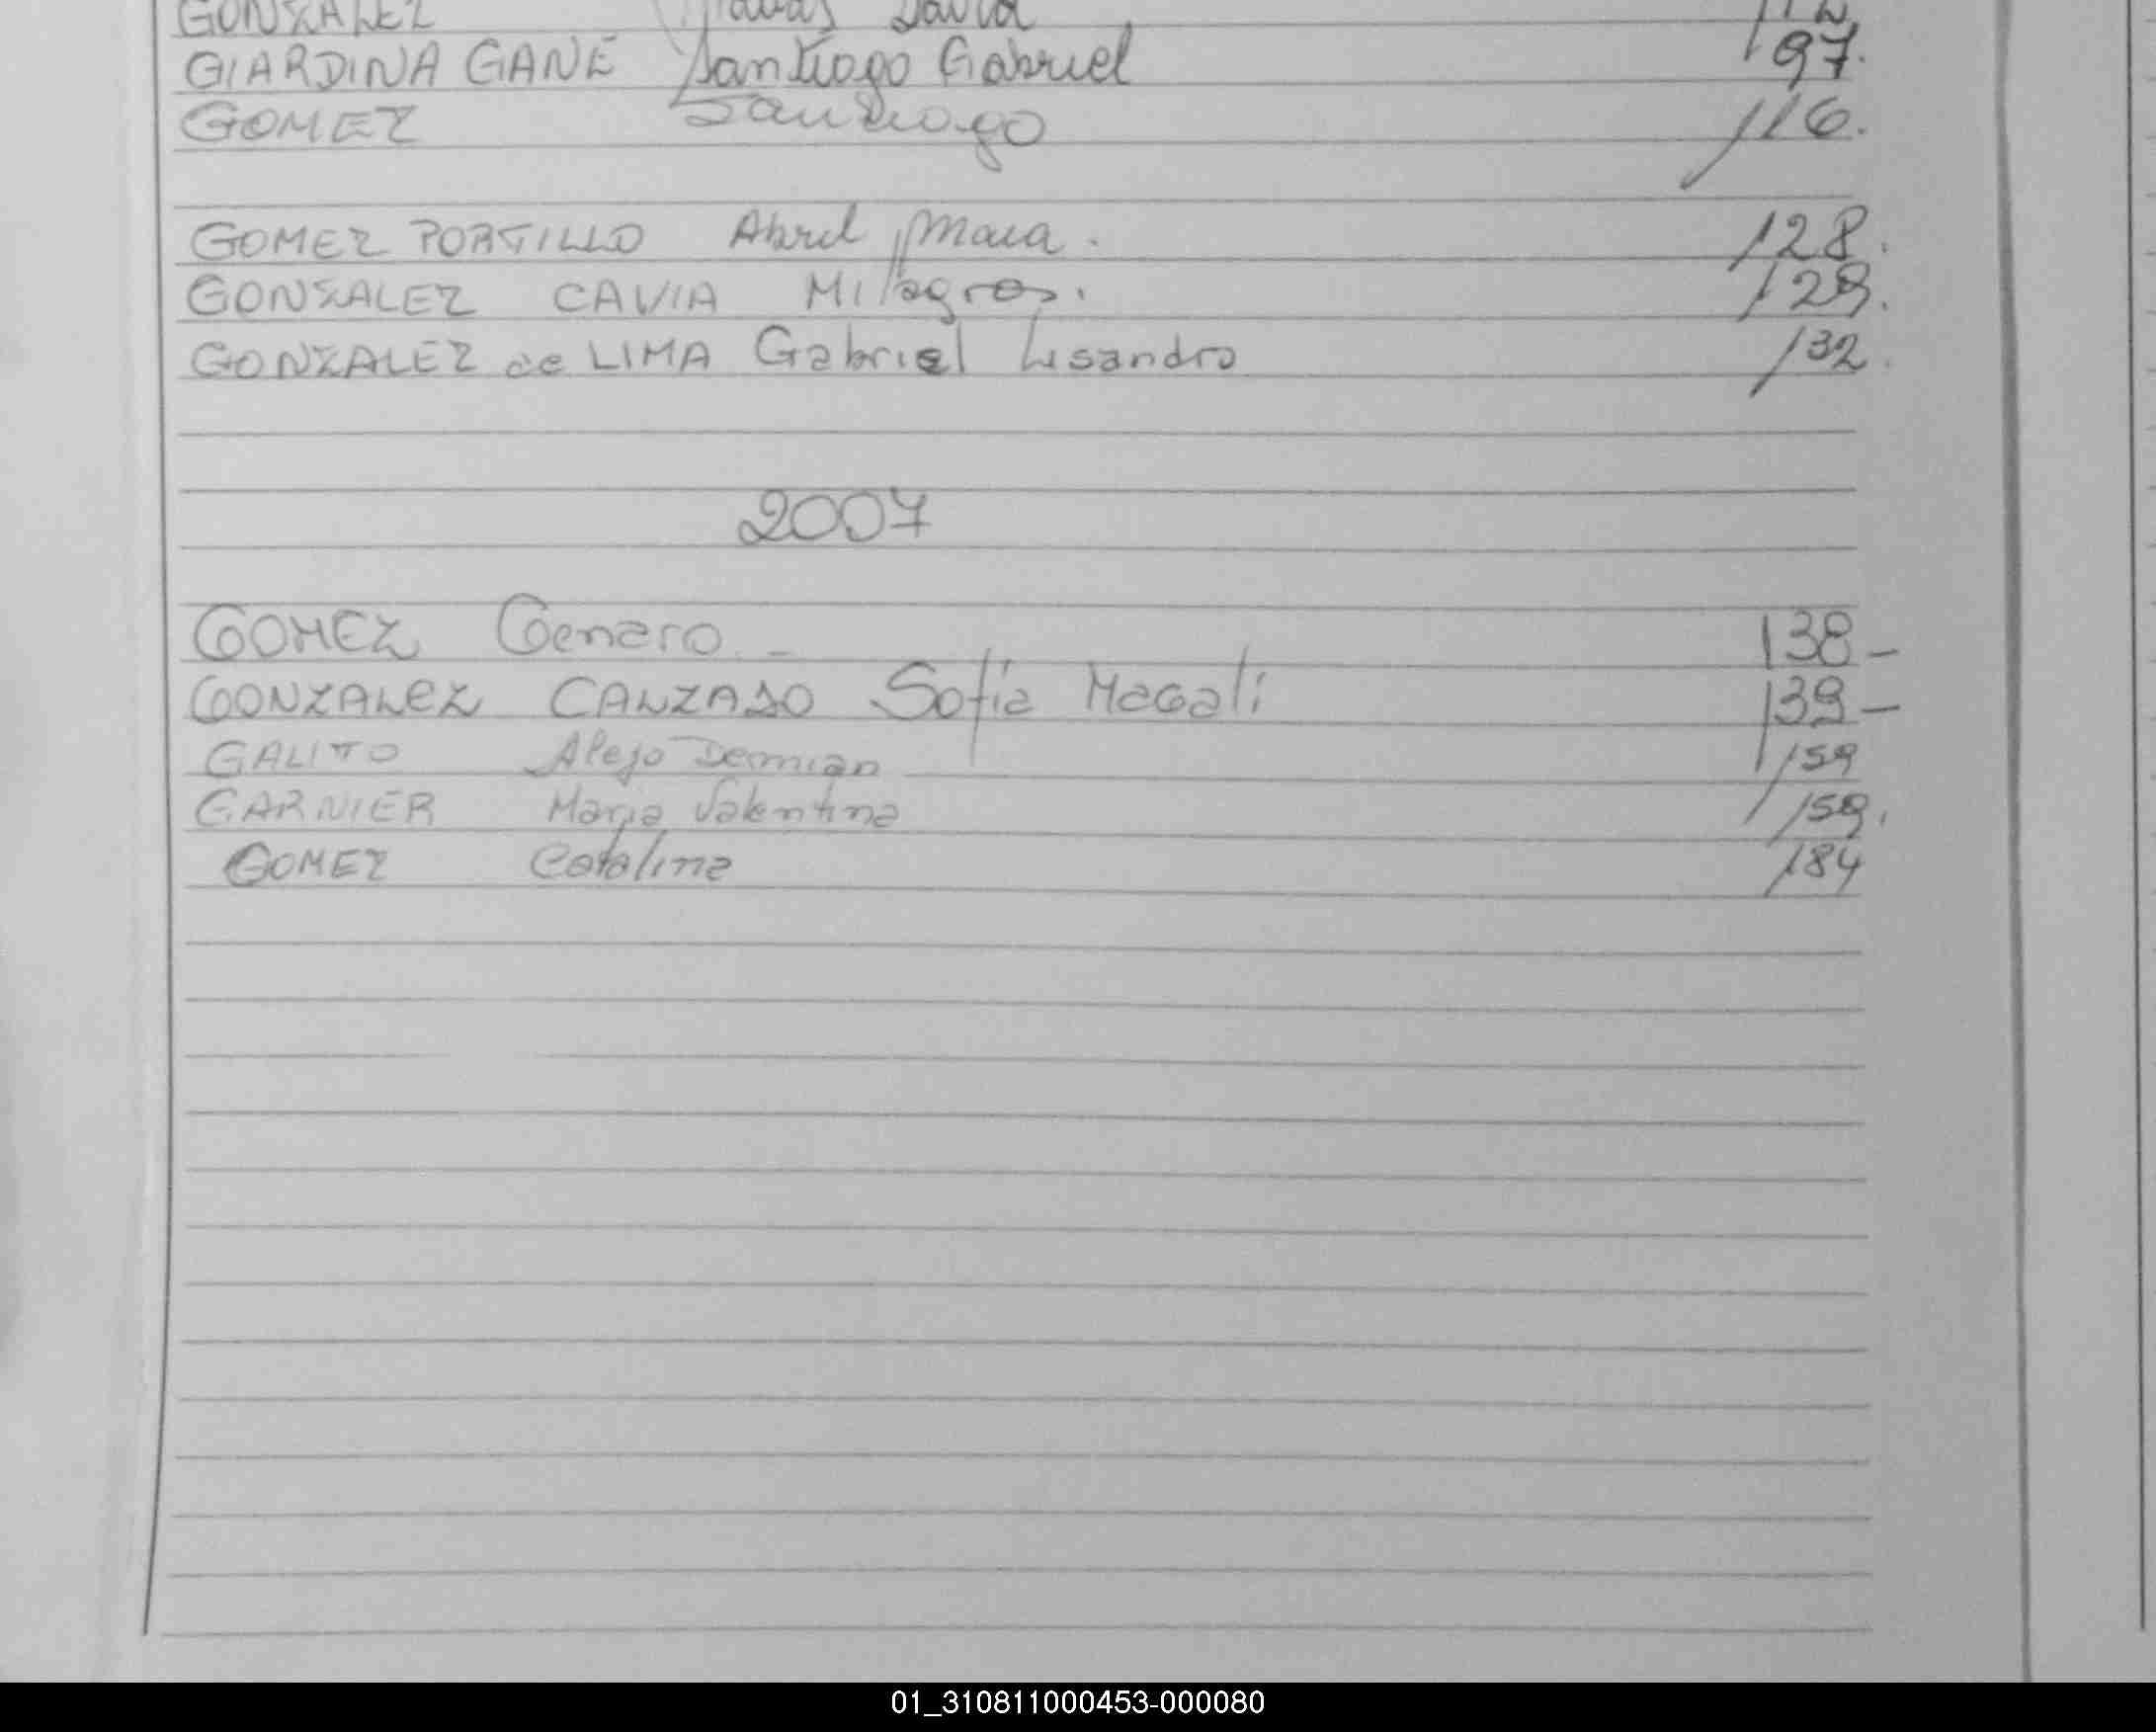 GONZALEZ David
GIARDINA GANE Santiago Gabriel 97.
GOMEZ Santiago 116.
GOMEZ PORTILLO Abril Maia. 128.
GONZALEZ CAVIA Milagros. 129.
GONZALEZ de LIMA Gabriel Lisandro 132.
2007
GOMEZ Genaro - 138-
GONZALEZ CALZADO Sofia Magali 139-
GALITO Alejo Demian 159
GARNIER Maria Valentina 159.
GOMEZ Catalina 184
01_310811000453-000080